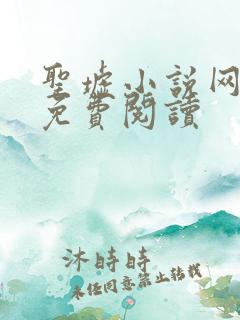 聖墟小説网
免費閱讀
沐時時
未经同意禁止转载